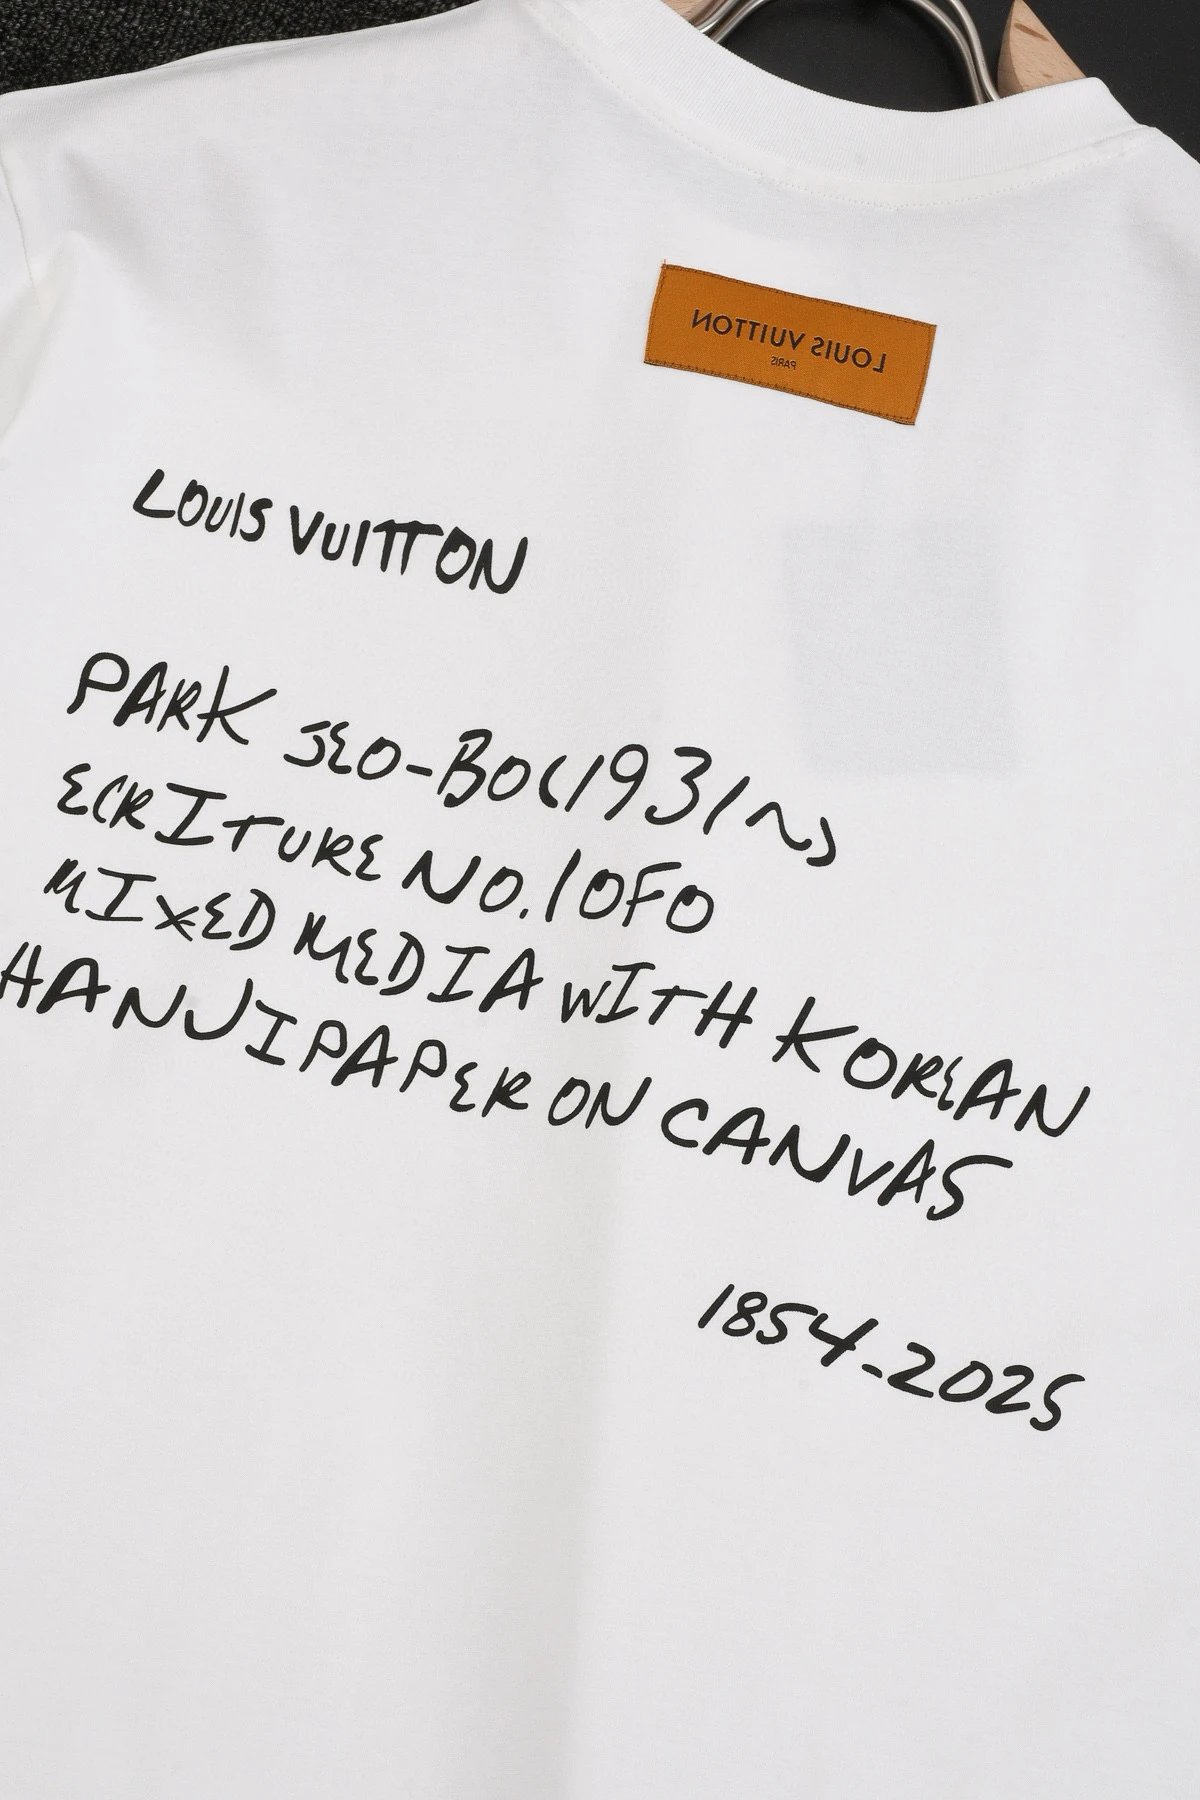 LOUIS VUITTON
PARIS
LOUIS VUITTON
PARK SEO-BO(1931~)
ECRITURE NO.10F0
MIXED MEDIA WITH KOREAN
HANJIPAPER ON CANVAS
1854-2025